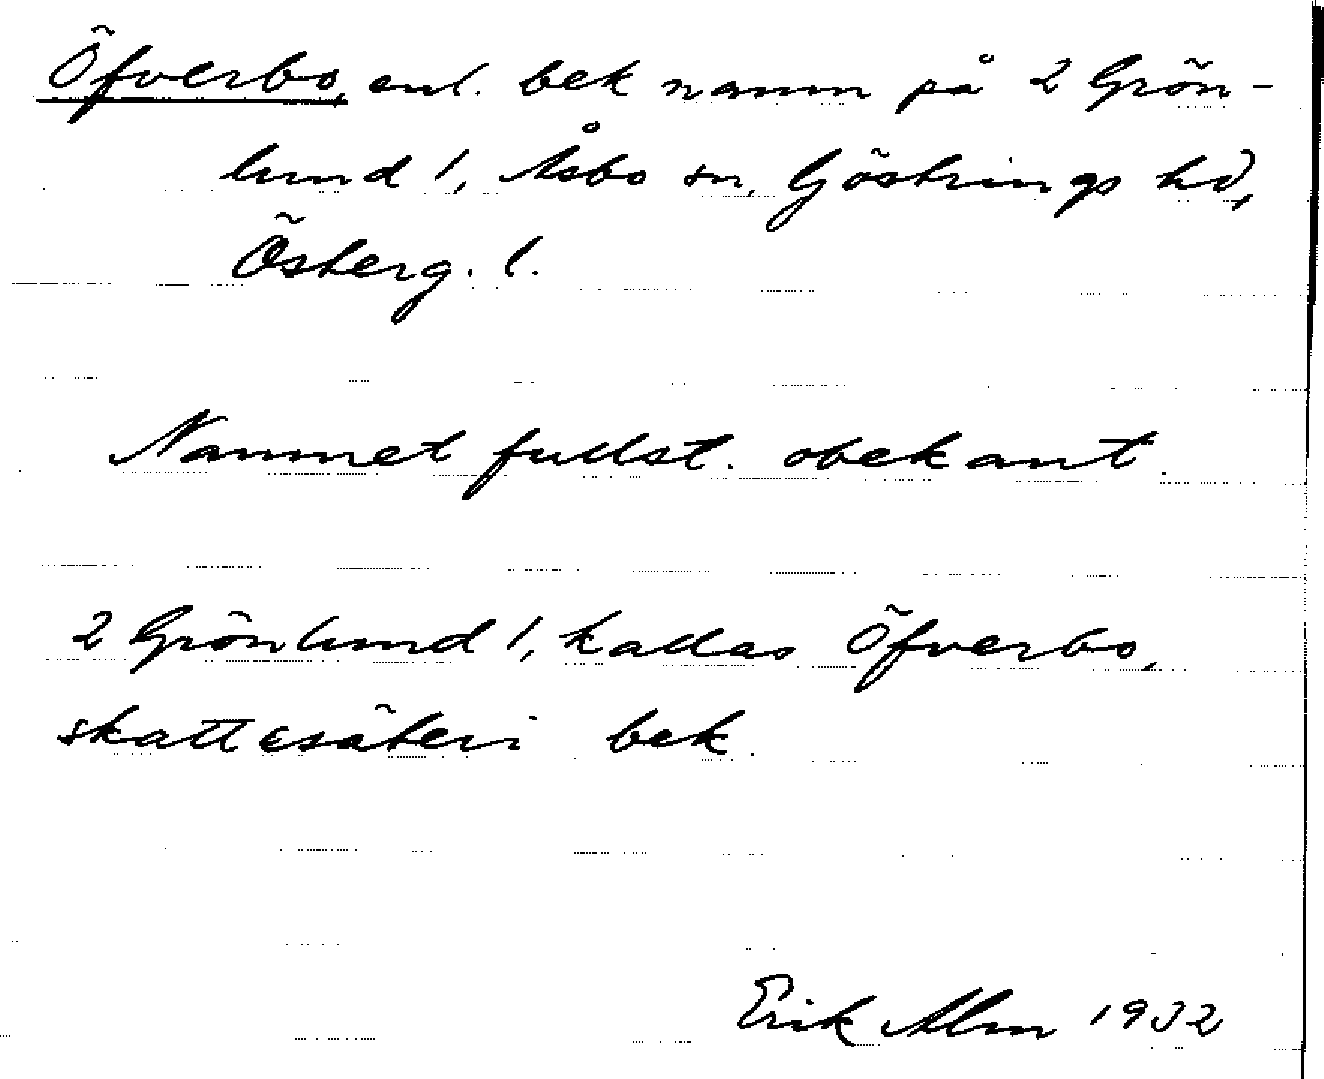 Öfverbo, enl. bek namn på 2 Grön-
lund 1, Åsbo sn, Göstrings hd,
Österg. l.
Namnet fullst. obekant.
2 Grönlund 1, kallas Öfverbo,
skattesäteri bek.
Erik Alm 1932